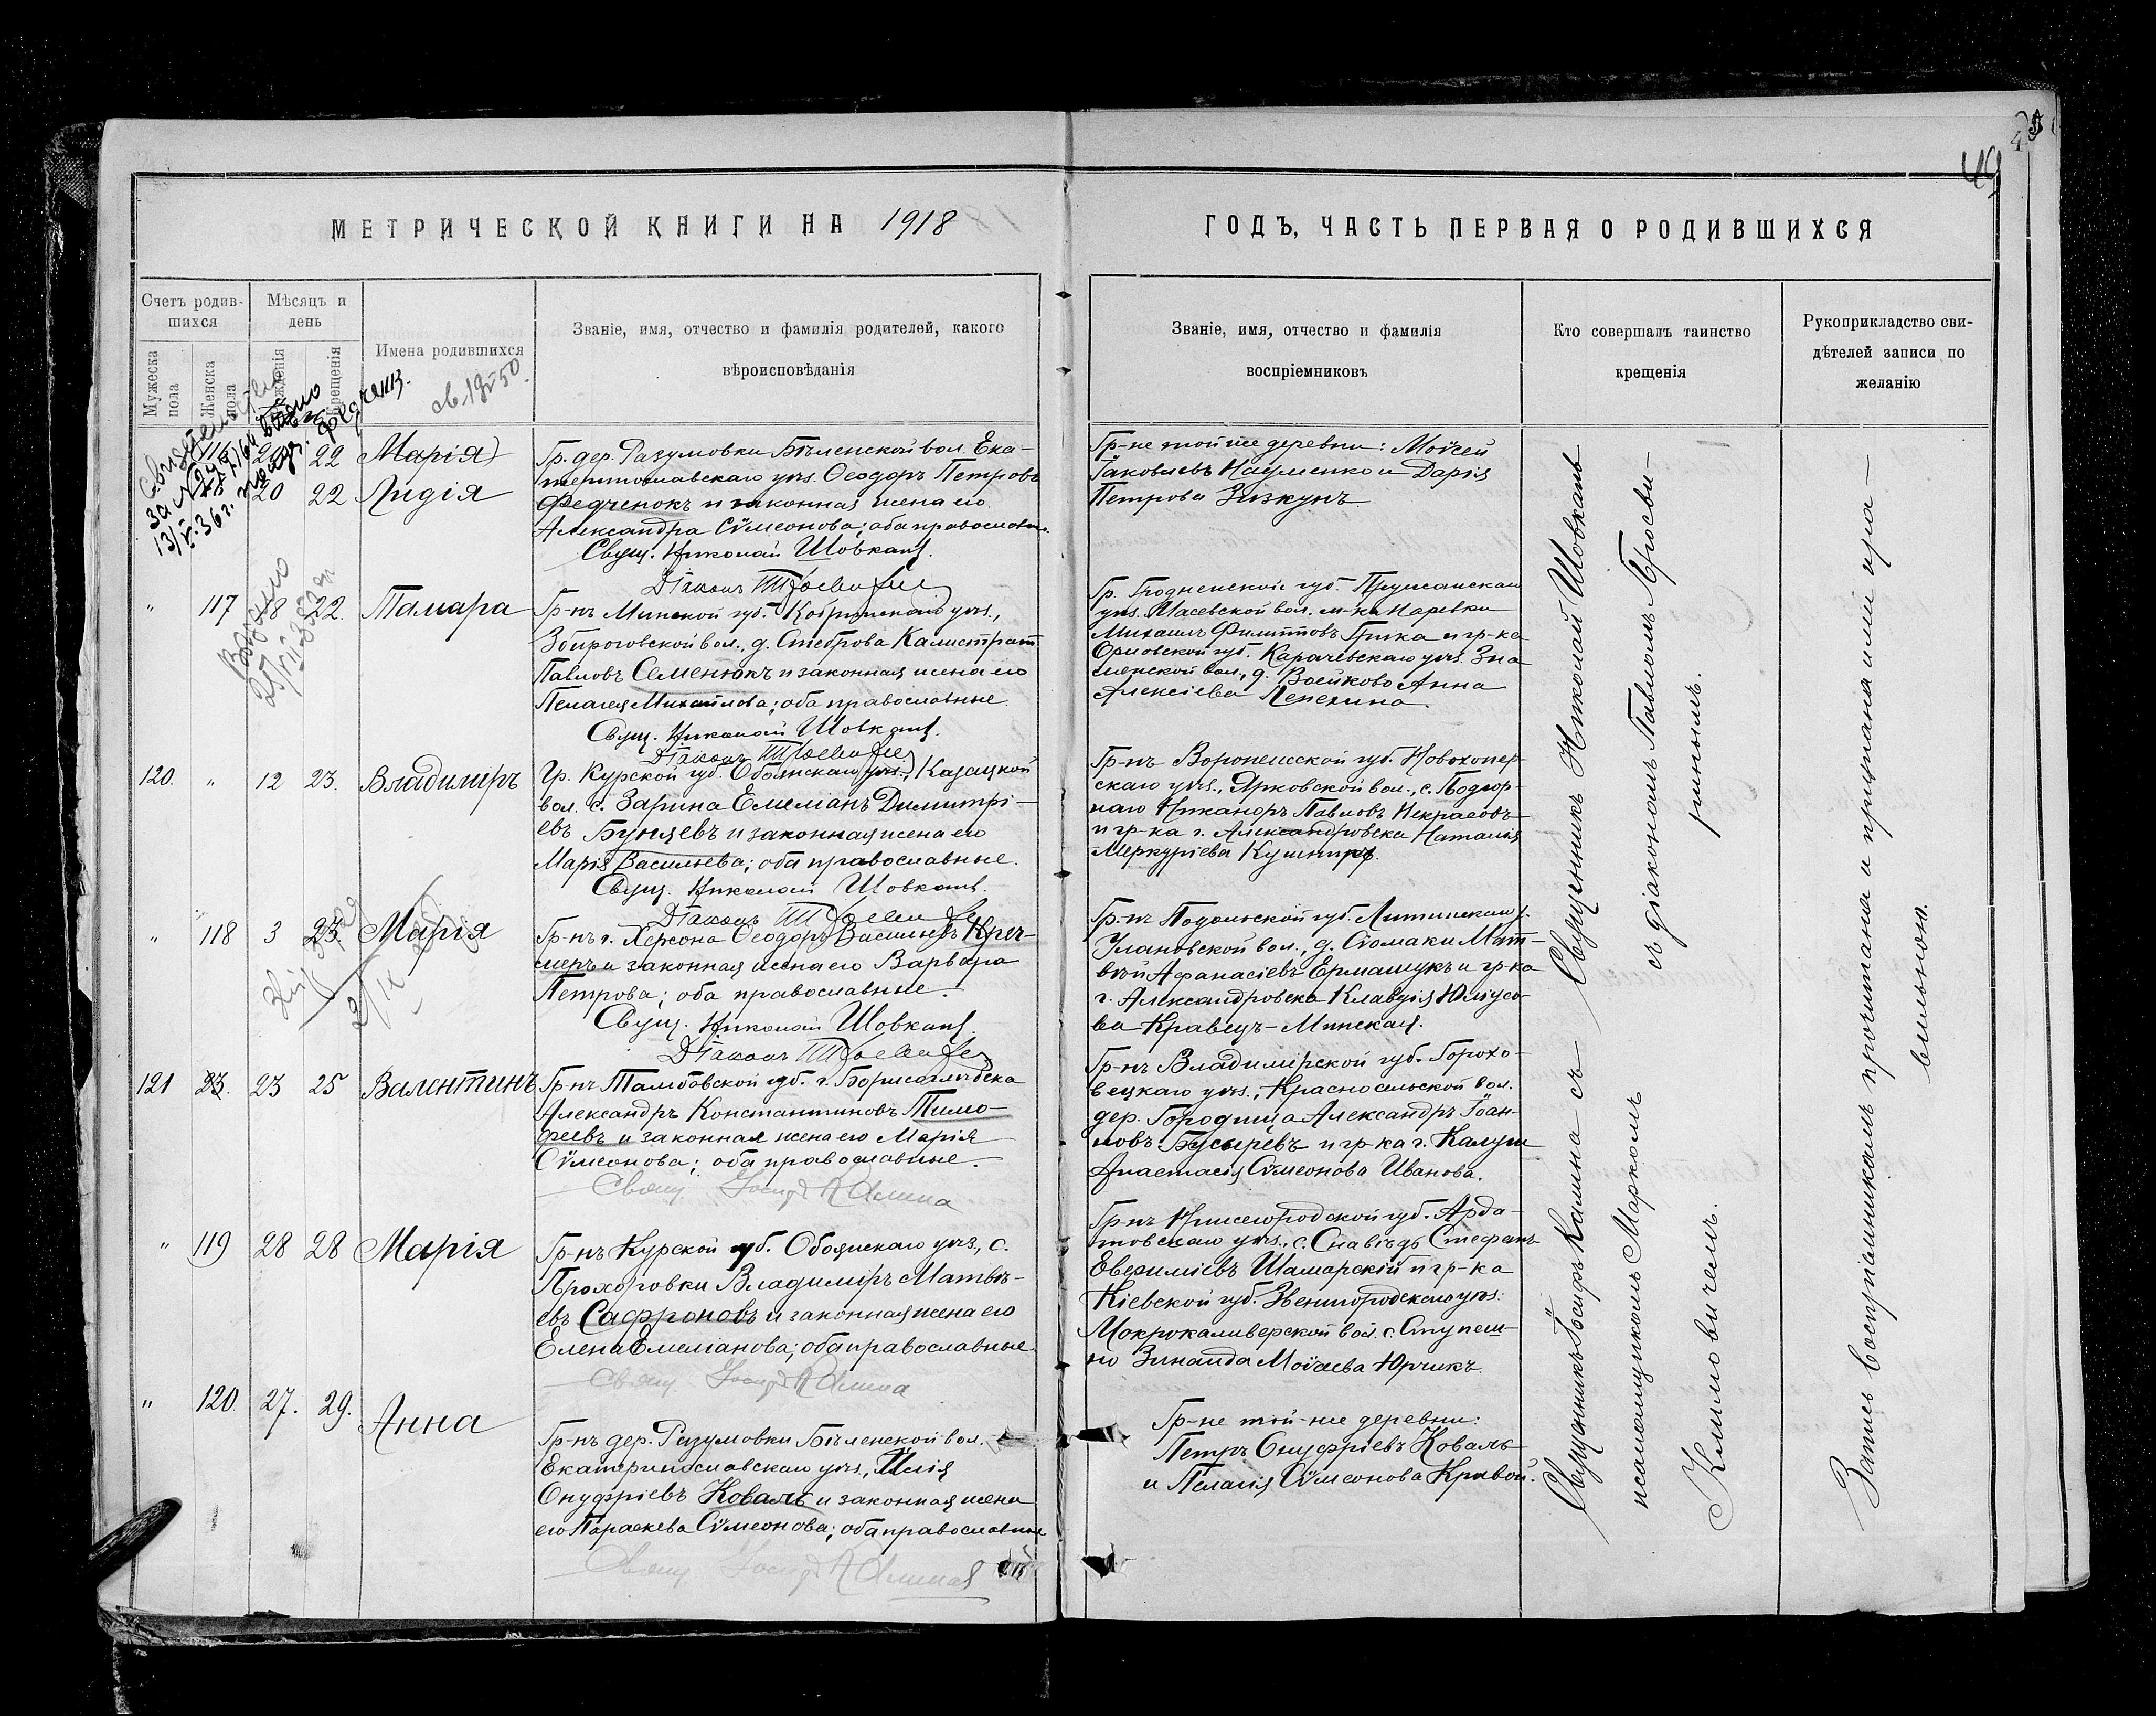 49
МЕТРИЧЕСКОЙ КНИГИ НА 1918
ГОДЪ, ЧАСТЬ ПЕРВАЯ О РОДИВШИХСЯ
Счетъ родив-
шихся
Мѣсяцъ и
день
Мужеска
пола
Женска
пола
рожденія
крещенія
Имена родившихся
Званіе, имя, отчество и фамилія родителей, какого
вѣроисповѣданія
Званіе, имя, отчество и фамилія
воспріемниковъ
Кто совершалъ таинство
крещенія
Рукоприкладство сви-
дѣтелей записи по
желанію
22 Марія
20 22 Лидія
Гр. дер. Разумовки Бѣленской вол. Ека-
теринославскаго уѣз. Ѳеодоръ Петровъ
Федченокъ и законная жена его
Александра Сѵмеонова; оба православн.
Свящ. Николай Шовкань.
Діаконъ
Гр-не той же деревни: Моѵсей
Іаковлевъ Науменко и Дарія
Петрова Зизкунъ
" 117 18 22. Тамара
Гр-нъ Минской губ. Кобринскаго уѣз.,
Збироговской вол., д. Стеброва Калистратъ
Павловъ Семенюкъ и законная жена его
Пелагея Михайлова; оба православные.
Свящ. Николай Шовкань.
Діаконъ
Гр. Гродненской губ. Пружанскаго
уѣз. Масевской вол. м-ка Наревки
Михаилъ Филипповъ Грика и гр-ка
Орловской губ. Карачевскаго уѣз. Зна-
менской вол., д. Воейково Анна
Алексіева Лепехина.
120. " 12 23. Владиміръ
Гр. Курской губ. Обоянскаго уѣз., Казацкой
вол. с. Зарина Емеліанъ Димитрі-
евъ Буняевъ и законная жена его
Марія Васильева; оба православные.
Свящ. Николай Шовкань.
Діаконъ
Гр-нъ Воронежской губ. Новохопер-
скаго уѣз., Ярковской вол., с. Подгор-
наго Никаноръ Павловъ Некрасовъ
и гр-ка г. Александровска Наталія
Меркуріева Кушниръ.
" 118 3 23. Марія
Гр-нъ г. Херсона Ѳеодоръ Васильевъ Креч-
меръ и законная жена его Варвара
Петрова; оба православные.
Свящ. Николай Шовкань.
Діаконъ
Гр-нъ Подольской губ. Литинскаго у.
Улановской вол., д. Сіомаки Мат-
вѣй Афанасіевъ Ермащукъ и гр-ка
г. Александровска Клавдія Юліусо-
ва Кравецъ-Минская.
121 23. 23 25 Валентинъ
Гр-нъ Тамбовской губ. г. Борисоглѣбска
Александръ Константиновъ Тимо-
феевъ и законная жена его Марія
Сѵмеонова; оба православные.
Свящ Іосифъ Калина
Гр-нъ Владимірской губ. Горохо-
вецкаго уѣз., Красносельской вол.
дер. Городища Александръ Іоан-
новъ Бусыревъ и гр-ка г. Калуги
Анастасія Сѵмеонова Иванова.
" 119 28 28 Марія
Гр-нъ Курской губ. Обоянскаго уѣз., с.
Прохоровки Владиміръ Матвѣ-
евъ Сафроновъ и законная жена его
Елена Емеліанова; оба православные
Свящ Іосифъ Калина
Гр-нъ Нижегородской губ. Арда-
товскаго уѣз., с. Снавѣдь Стефанъ
Евфиміевъ Шамарскій и гр-ка
Кіевской губ. Звенигородскаго уѣз:
Мокрокалигерской вол. с. Ступеш-
но Зинаида Моѵсеева Юрчикъ.
" 120. 27. 29. Анна
Гр-нъ дер. Разумовки Бѣленской вол.
Екатеринославскаго уѣз., Илія
Онуфріевъ Коваль и законная жена
его Параскева Сѵмеонова; оба православные
Свящ Іосифъ Калина
Гр-не той-же деревни:
Петръ Онуфріевъ Коваль
и Пелагія Сѵмеонова Кривой.
Священникъ Николай Шовкань
съ діакономъ Павломъ Просви-
рнинымъ.
Священникъ Іосифъ Калина съ
псаломщикомъ Маркомъ
Климовичемъ.
Запись воспріемникамъ прочитана и признана ими пра-
вильною.